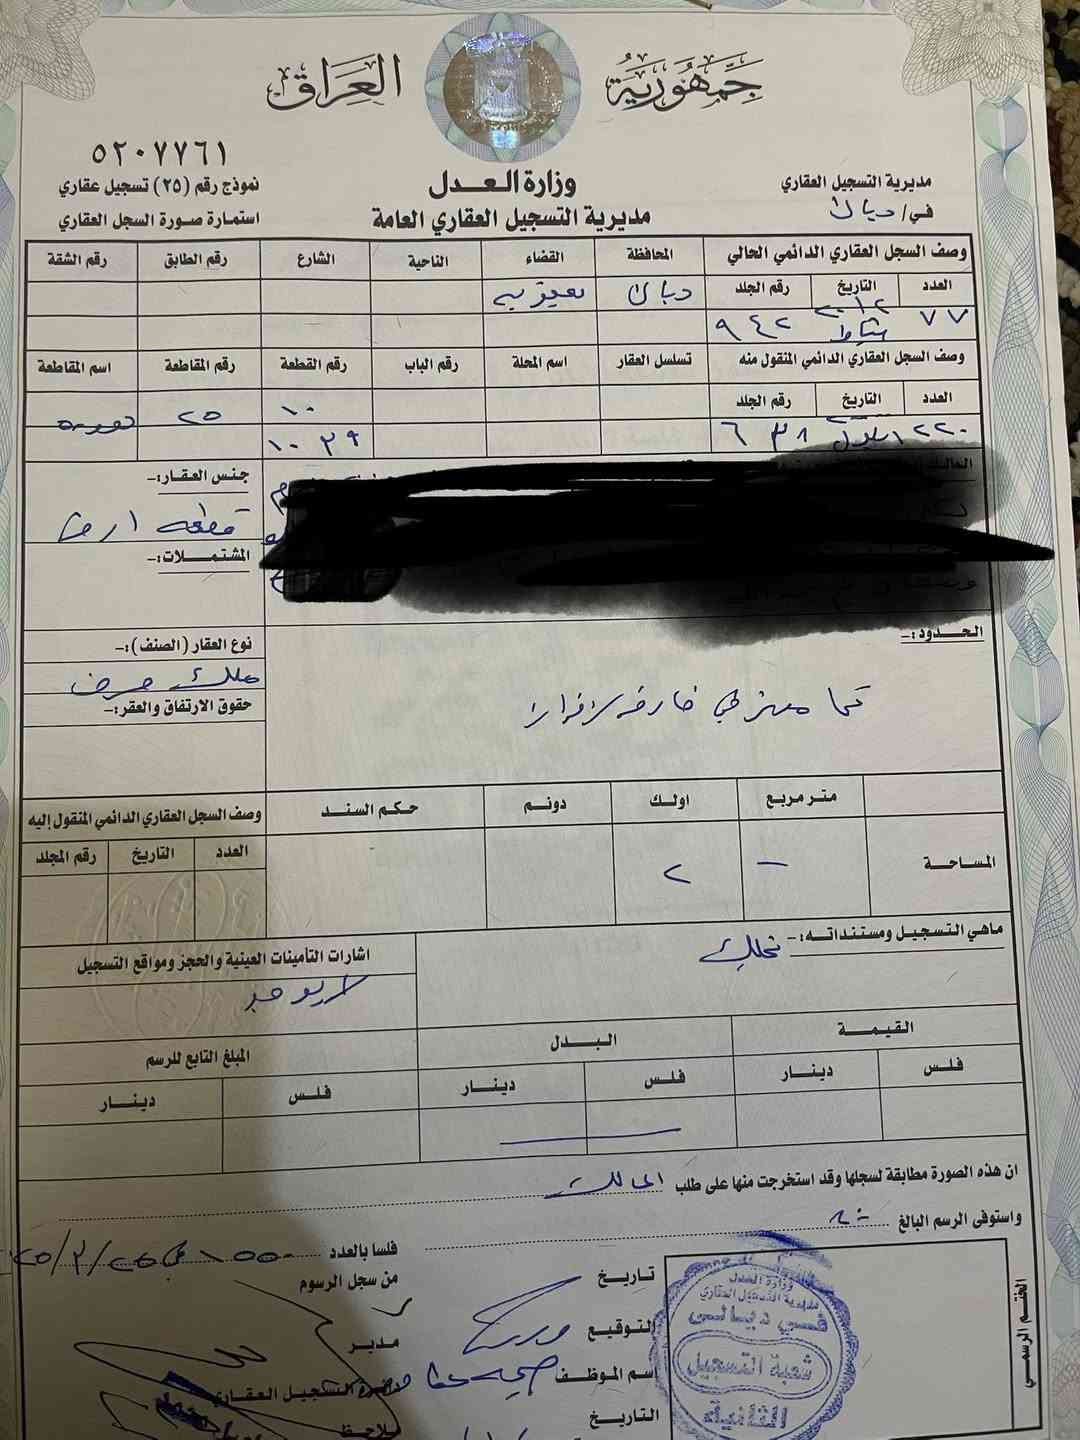 جمهورية العراق
٥٢٠٧٧٦١
وزارة العدل
مديرية التسجيل العقاري العامة
مديرية التسجيل العقاري
في/ ديالى
نموذج رقم (٢٥) تسجيل عقاري
استمارة صورة السجل العقاري
وصف السجل العقاري الدائمي الحالي المحافظة القضاء الناحية الشارع رقم الطابق رقم الشقة
العدد التاريخ رقم الجلد ديالى بعقوبه
٧٧ شباط ٢٠١٢ ٩٤٢
وصف السجل العقاري الدائمي المنقول منه تسلسل العقار اسم المحلة رقم الباب رقم القطعة رقم المقاطعة اسم المقاطعة
العدد التاريخ رقم الجلد ١٠ ٢٥
٢٢٠ ايلول ٦٣٨ ١٠٣٩
جنس العقار:-
قطعه ارض
المشتملات:-
الحدود:-
نوع العقار (الصنف):-
ملك صرف
حقوق الارتفاق والعقر:-
كما مبين في خارطة الافراز
متر مربع اولك دونم حكم السند وصف السجل العقاري الدائمي المنقول إليه
العدد التاريخ رقم المجلد
المساحة – ٢
ماهي التسجيل ومستنداته:-
اشارات التأمينات العينية والحجز ومواقع التسجيل
لايوجد
القيمة البدل المبلغ التابع للرسم
فلس دينار فلس دينار فلس دينار
ان هذه الصورة مطابقة لسجلها وقد استخرجت منها على طلب المالك
واستوفى الرسم البالغ
فلسا بالعدد
من سجل الرسوم
تاريخ
التوقيع
اسم الموظف
التاريخ
مدير
دائرة التسجيل العقاري
ملاحظ
الختم الرسمي
وزارة العدل
مديرية التسجيل العقاري
في ديالى
شعبة التسجيل
الثانية